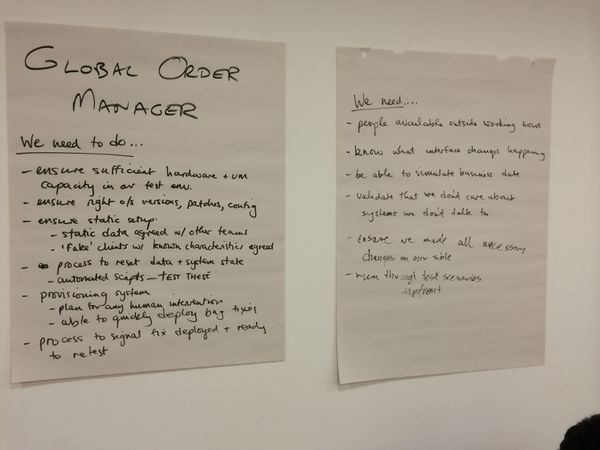 GLOBAL ORDER
MANAGER
We need to do...
- ensure sufficient hardware + vm
capacity in our test env.
- ensure right o/s versions, patches, config
- ensure static setup:
- static data agreed w/ other teams
- 'fake' clients w/ known characteristics agreed
- process to reset data + system state
- automated scripts - TEST THESE
- provisioning system
- plan for any human intervention
- able to quickly deploy bug fixes
- process to signal fix deployed + ready
to retest
We need....
- people available outside working hours
- know what interface changes happening
- be able to simulate business date
- validate that we don't care about
systems we don't talk to
- ensure we made all necessary
changes on our side
- run through test scenarios
upfront